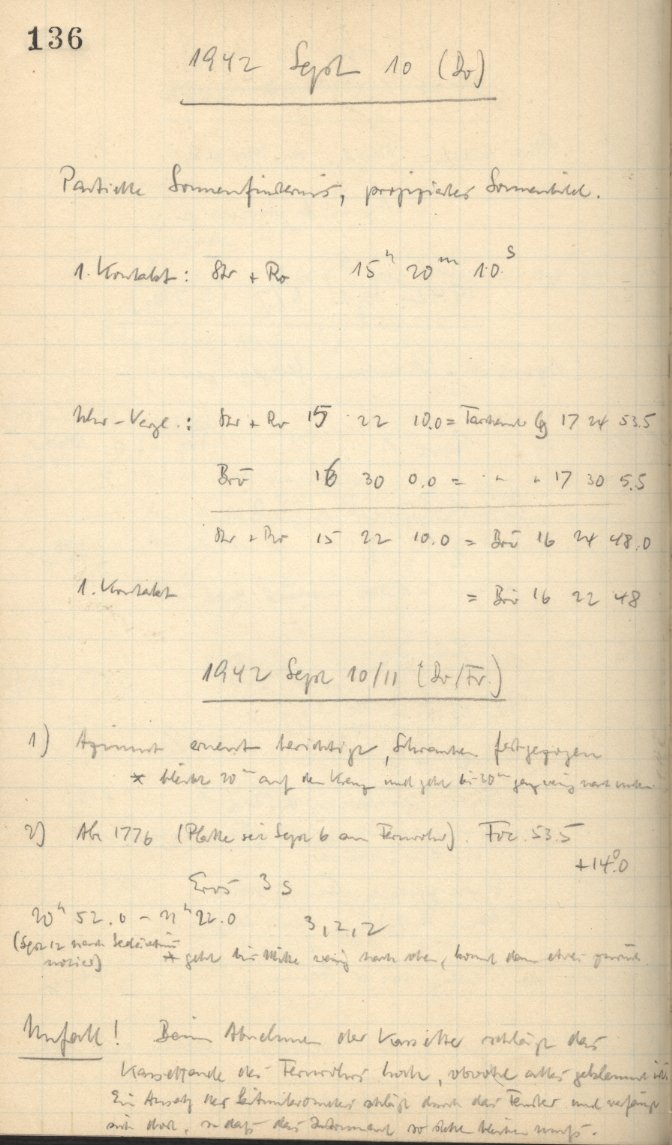 136
1942 Sept 10 (Do)
Partielle Sonnenfinsternis, projiziertes Sonnenbild.
1. Kontakt: Str + Ro 15h 20m 10s
Uhr-Vergl.: Str + Ro 15 22 10.0 = 17 24 53.5
Brö 16 30 0.0 = " " 17 30 5.5
Str + Ro 15 22 10.0 = Brö 16 24 48.0
1. Kontakt = Brö 16 22 48
1942 Sept 10/11 (Do/Fr.)
1) Azimut erneut berichtigt, Schrauben festgezogen
* bleibt 20m auf dem Kreuz und geht bis 30m ganz wenig nach unten
2) Abr 1776 (Platte seit Sept 6 am Fernrohr). Foc. 53.5
+14°.0
Eros 3 S
20h 52.0 - 21h 22.0 3,2,2
(Sept 12 nach Gedächtnis
notiert) * geht bis Mitte wenig nach oben, kommt dann etwas zurück.
Unfall! Beim Abnehmen der Kassette schlägt das
Kassettenende des Fernrohrs hoch, obwohl alles geklemmt ist.
Ein Ansatz des schlägt durch das Fenster und verfängt
sich dort, so daß das Instrument so stehen bleiben muß.